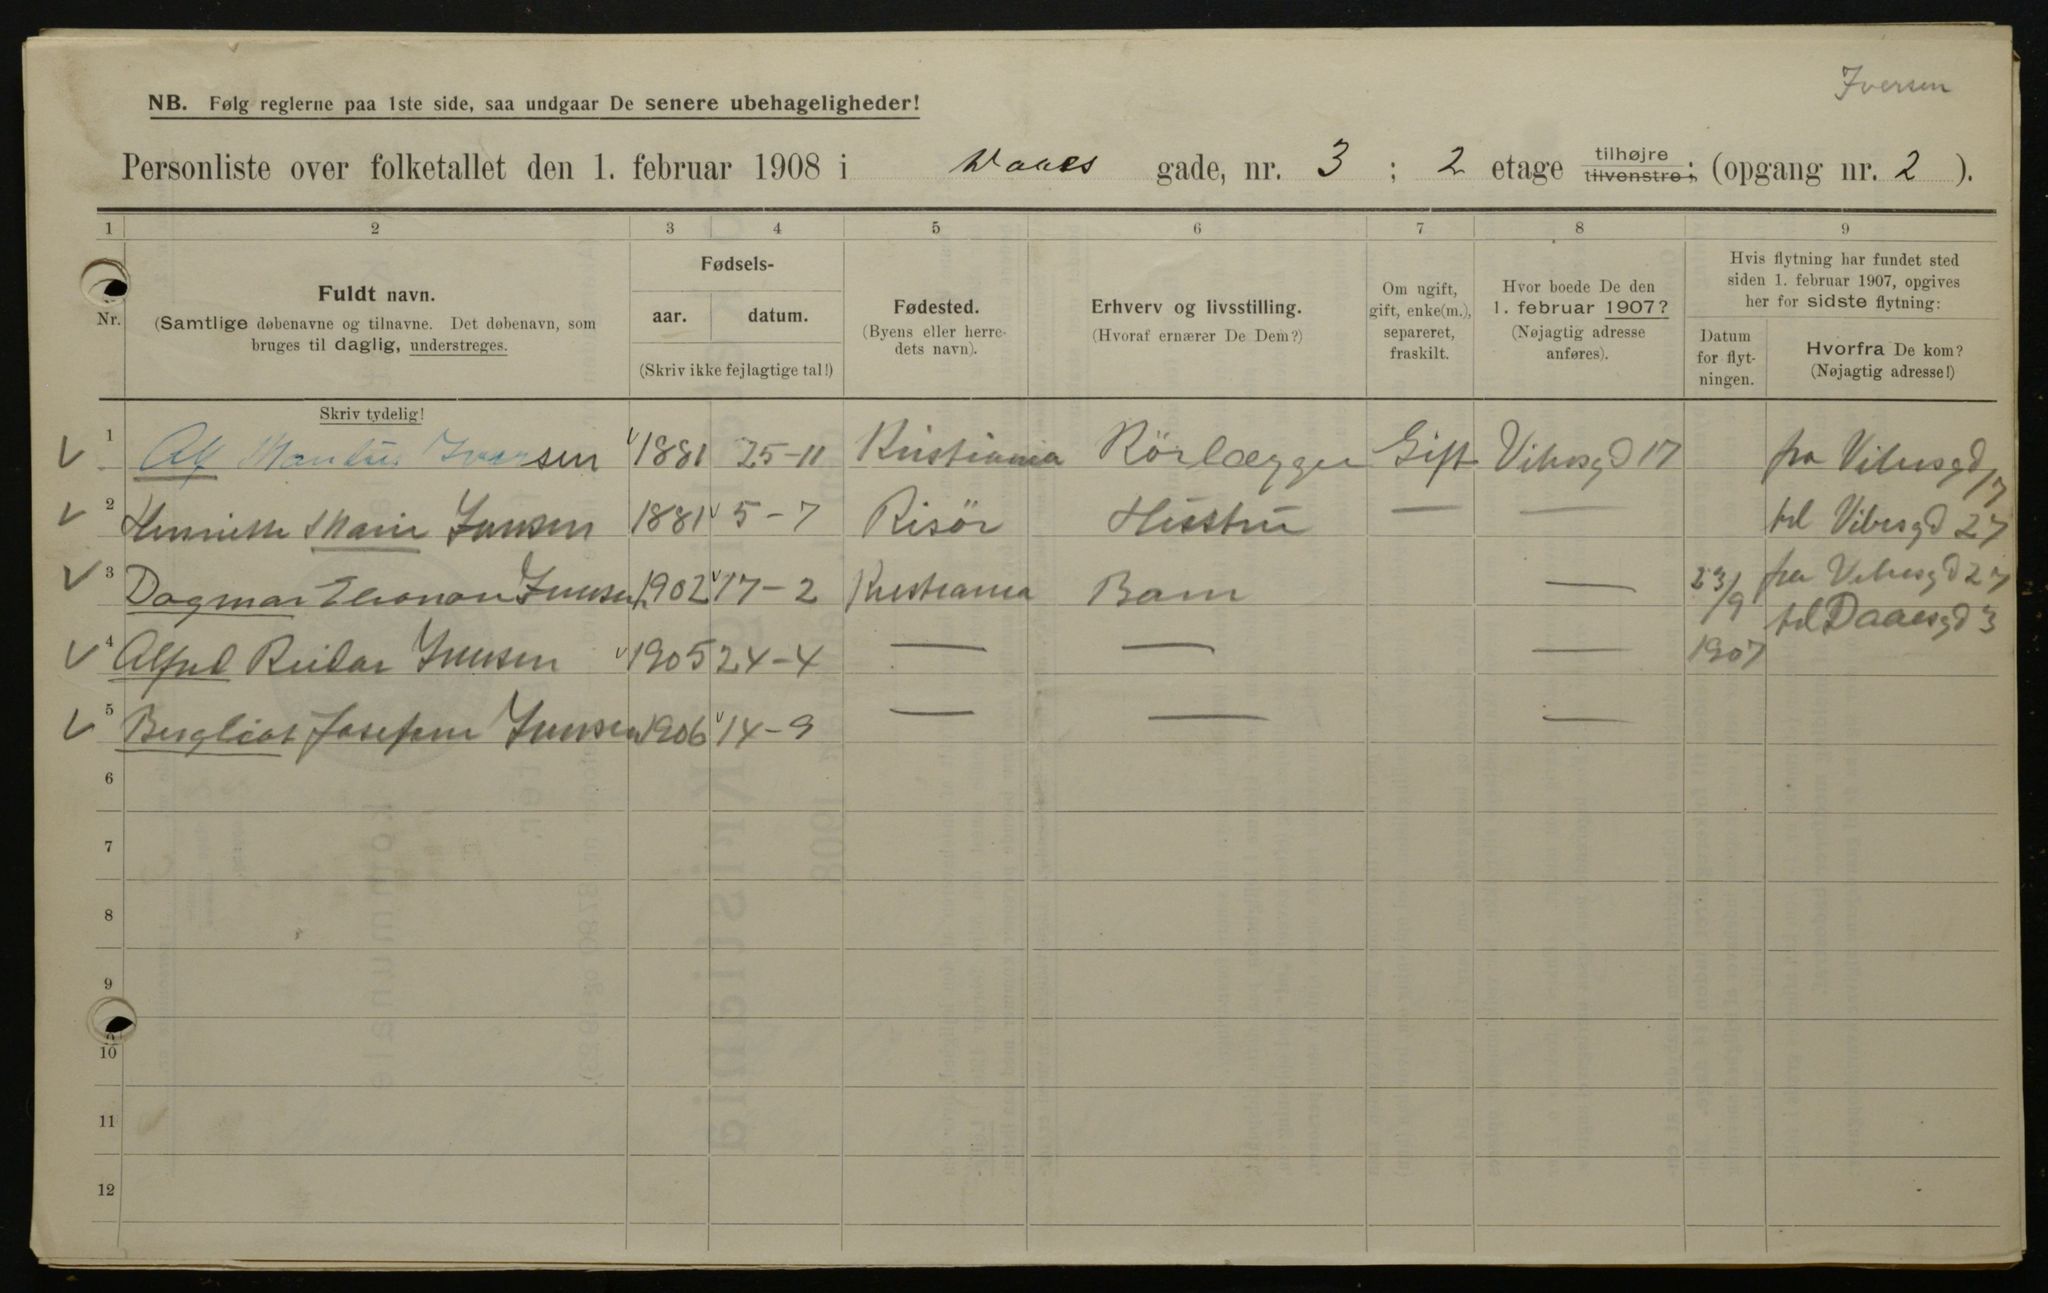 Iversen
NB. Følg reglerne paa 1ste side, saa undgaar De senere ubehageligheder!
Personliste over folketallet den 1. februar 1908 i Daaes gade, nr. 3 ; 2 etage tilhøjre tilvenstre; (opgang nr. 2 ).
1 2 3 4 5 6 7 8 9
Nr.
Fuldt navn.
(Samtlige døbenavne og tilnavne. Det døbenavn, som
bruges til daglig, understreges.
Skriv tydelig!
Fødsels-
aar. datum.
(Skriv ikke fejlagtige tal!)
Fødested.
(Byens eller herre-
dets navn).
Erhverv og livsstilling.
(Hvoraf ernærer De Dem?)
Om ugift,
gift, enke(m.),
separeret,
fraskilt.
Hvor boede De den
1. februar 1907?
(Nøjagtig adresse
anføres).
Hvis flytning har fundet sted
siden 1. februar 1907, opgives
her for sidste flytning:
Datum
for flyt-
ningen.
Hvorfra De kom?
(Nøjagtig adresse!)
1 Alf Iversen 1881 25-11 Kristiania Rörlægger Gift Vibesgd 17 fra Vibesgd 17
2 Henriette Marie Iversen 1881 5-7 Risör Hustru — — til Vibesgd 27
3 Dagmar Elionor Iversen 1902 17-2 Kristiania Barn — 23/9 fra Vibesgd 27
til Daaesgd 3
4 Alfred Reidar Iversen 1905 24-4 — — — 1907
5 Bergliot Josefine Iversen 1906 14-9 — — —
6
7
8
9
10
11
12